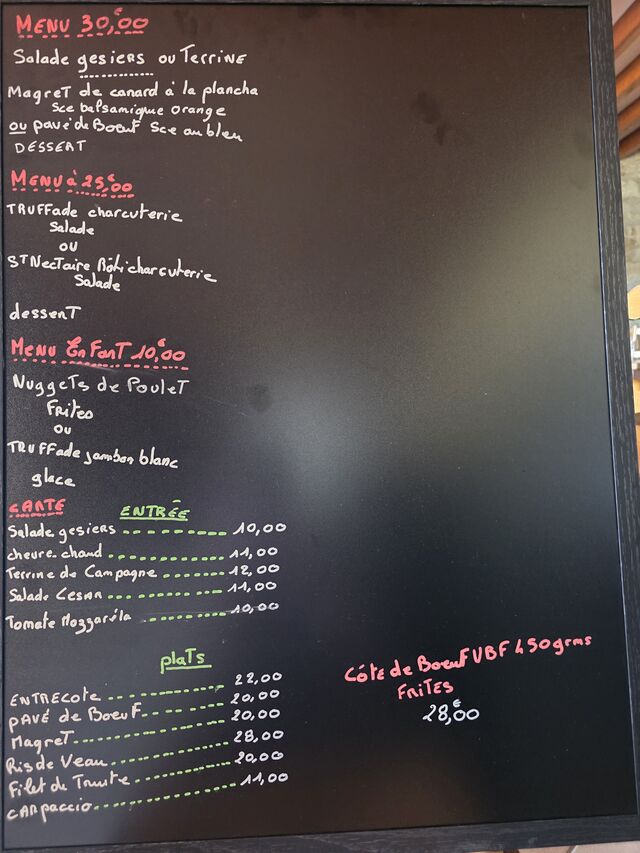 MENU 30,00€
Salade gesiers ou Terrine
Magret de canard à la plancha
Sce balsamique orange
ou pavé de Boeuf Sce au bleu
DESSERT
MENU à 25,00€
TRUFFade charcuterie
Salade
ou
ST Nectaire Rôti charcuterie
Salade
dessenT
MENU EnFanT 10,00€
NuggeTs de PouleT
Frites
ou
TRUFFade jambon blanc
glace
CARTE
ENTRÉE
Salade gesiers 10,00
chevre chaud 11,00
Terrine de Campagne 12,00
Salade Cesar 11,00
Tomate Mozzaréla 10,00
plaTs
ENTRECOTE 22,00
PAVÉ de BoeuF 20,00
MagreT 20,00
Ris de Veau 28,00
Filet de Truite 20,00
CARpaccio 11,00
CôTe de BoeuF VBF 450 grms
FRITES
28,00€